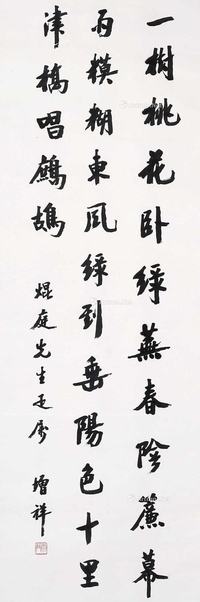 一樹桃花卧綠蕪春陰簾幕
雨模糊東風綠到垂陽色十里
津橋唱鷓鴣
焜庭先生正屬
增祥